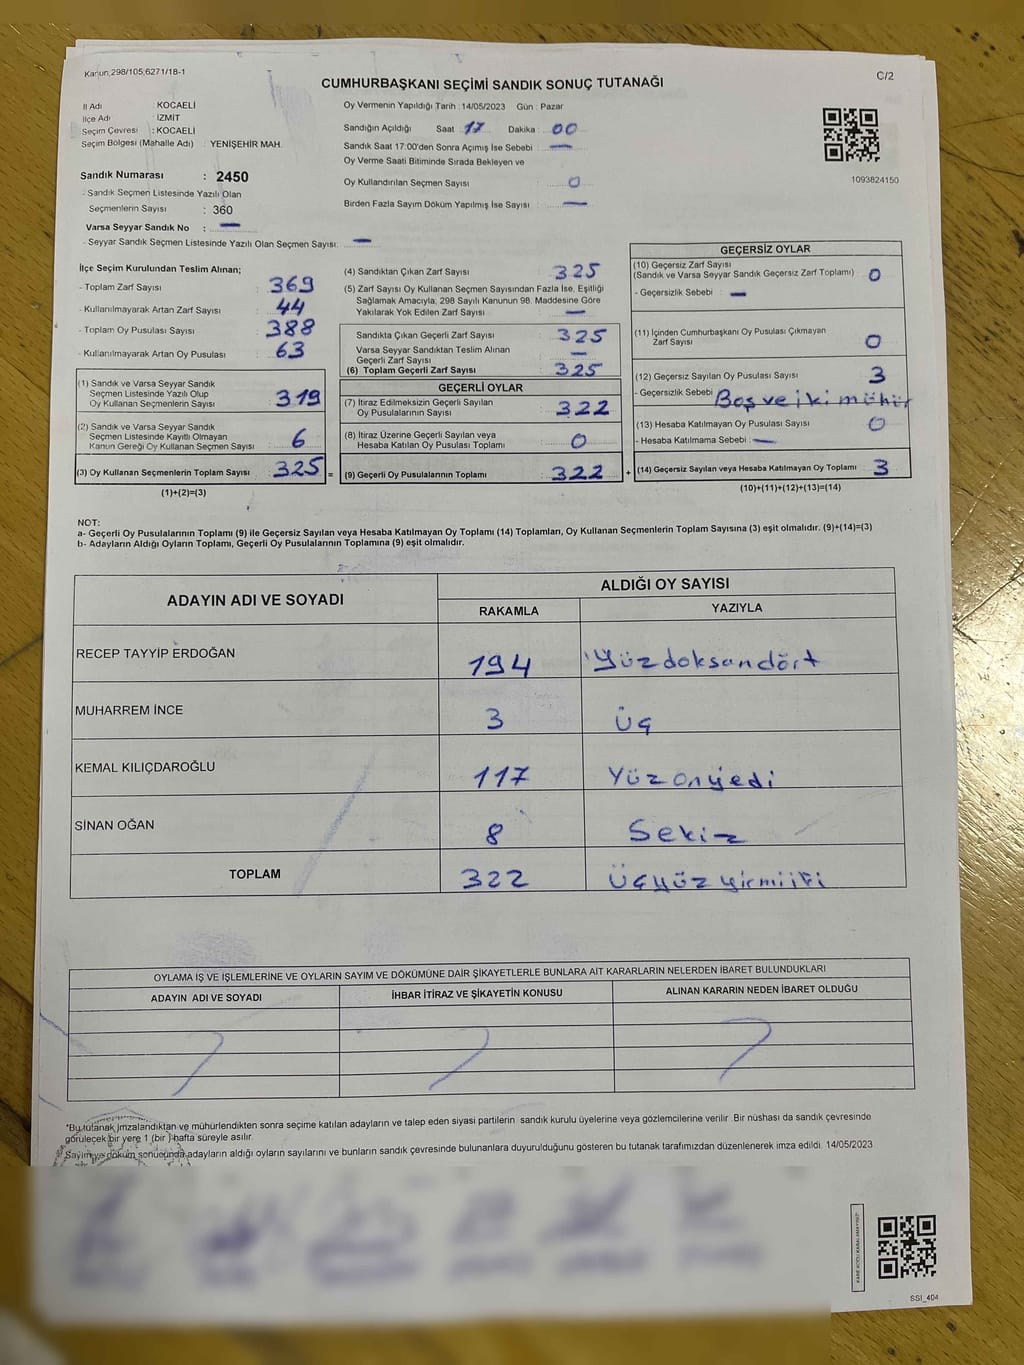 Kanun,298/105,6271/18-1
C/2
CUMHURBAŞKANI SEÇİMİ SANDIK SONUÇ TUTANAĞI
İl Adı KOCAELİ
İlçe Adı İZMİT
Seçim Çevresi : KOCAELİ
Seçim Bölgesi (Mahalle Adı) : YENİŞEHİR MAH.
Sandık Numarası : 2450
- Sandık Seçmen Listesinde Yazılı Olan
Seçmenlerin Sayısı : 360
Varsa Seyyar Sandık No : —
- Seyyar Sandık Seçmen Listesinde Yazılı Olan Seçmen Sayısı: —
Oy Vermenin Yapıldığı Tarih : 14/05/2023 Gün : Pazar
Sandığın Açıldığı Saat : 17 Dakika : 00
Sandık Saat 17:00'den Sonra Açımış İse Sebebi : —
Oy Verme Saati Bitiminde Sırada Bekleyen ve
Oy Kullandırılan Seçmen Sayısı : 0
Birden Fazla Sayım Döküm Yapılmış İse Sayısı : —
1093824150
İlçe Seçim Kurulundan Teslim Alınan;
- Toplam Zarf Sayısı : 369
- Kullanılmayarak Artan Zarf Sayısı : 44
- Toplam Oy Pusulası Sayısı : 388
- Kullanılmayarak Artan Oy Pusulası : 63
(1) Sandık ve Varsa Seyyar Sandık
Seçmen Listesinde Yazılı Olup
Oy Kullanan Seçmenlerin Sayısı : 319
(2) Sandık ve Varsa Seyyar Sandık
Seçmen Listesinde Kayıtlı Olmayan
Kanun Gereği Oy Kullanan Seçmen Sayısı : 6
(3) Oy Kullanan Seçmenlerin Toplam Sayısı : 325 =
(1)+(2)=(3)
(4) Sandıktan Çıkan Zarf Sayısı : 325
(5) Zarf Sayısı Oy Kullanan Seçmen Sayısından Fazla İse, Eşitliği
Sağlamak Amacıyla, 298 Sayılı Kanunun 98. Maddesine Göre
Yakılarak Yok Edilen Zarf Sayısı : —
Sandıkta Çıkan Geçerli Zarf Sayısı : 325
Varsa Seyyar Sandıktan Teslim Alınan
Geçerli Zarf Sayısı : —
(6) Toplam Geçerli Zarf Sayısı : 325
GEÇERLİ OYLAR
(7) İtiraz Edilmeksizin Geçerli Sayılan
Oy Pusulalarının Sayısı : 322
(8) İtiraz Üzerine Geçerli Sayılan veya
Hesaba Katılan Oy Pusulası Toplamı : 0
(9) Geçerli Oy Pusulalarının Toplamı : 322 +
GEÇERSİZ OYLAR
(10) Geçersiz Zarf Sayısı
(Sandık ve Varsa Seyyar Sandık Geçersiz Zarf Toplamı) : 0
- Geçersizlik Sebebi : —
(11) İçinden Cumhurbaşkanı Oy Pusulası Çıkmayan
Zarf Sayısı : 0
(12) Geçersiz Sayılan Oy Pusulası Sayısı : 3
- Geçersizlik Sebebi : Boş ve iki mühür
(13) Hesaba Katılmayan Oy Pusulası Sayısı : 0
- Hesaba Katılmama Sebebi : —
(14) Geçersiz Sayılan veya Hesaba Katılmayan Oy Toplamı : 3
(10)+(11)+(12)+(13)=(14)
NOT:
a- Geçerli Oy Pusulalarının Toplamı (9) ile Geçersiz Sayılan veya Hesaba Katılmayan Oy Toplamı (14) Toplamları, Oy Kullanan Seçmenlerin Toplam Sayısına (3) eşit olmalıdır. (9)+(14)=(3)
b- Adayların Aldığı Oyların Toplamı, Geçerli Oy Pusulalarının Toplamına (9) eşit olmalıdır.
ADAYIN ADI VE SOYADI
ALDIĞI OY SAYISI
RAKAMLA YAZIYLA
RECEP TAYYİP ERDOĞAN 194 Yüzdoksandört
MUHARREM İNCE 3 Üç
KEMAL KILIÇDAROĞLU 117 Yüzonyedi
SİNAN OĞAN 8 Sekiz
TOPLAM 322 Üçyüzyirmiiki
OYLAMA İŞ VE İŞLEMLERİNE VE OYLARIN SAYIM VE DÖKÜMÜNE DAİR ŞİKAYETLERLE BUNLARA AİT KARARLARIN NELERDEN İBARET BULUNDUKLARI
ADAYIN ADI VE SOYADI İHBAR İTİRAZ VE ŞİKAYETİN KONUSU ALINAN KARARIN NEDEN İBARET OLDUĞU
*Bu tutanak imzalandıktan ve mühürlendikten sonra seçime katılan adayların ve talep eden siyasi partilerin sandık kurulu üyelerine veya gözlemcilerine verilir. Bir nüshası da sandık çevresinde
görülecek bir yere 1 (bir ) hafta süreyle asılır.
Sayım ve döküm sonucunda adayların aldığı oyların sayılarını ve bunların sandık çevresinde bulunanlara duyurulduğunu gösteren bu tutanak tarafımızdan düzenlenerek imza edildi. 14/05/2023
SSI_404